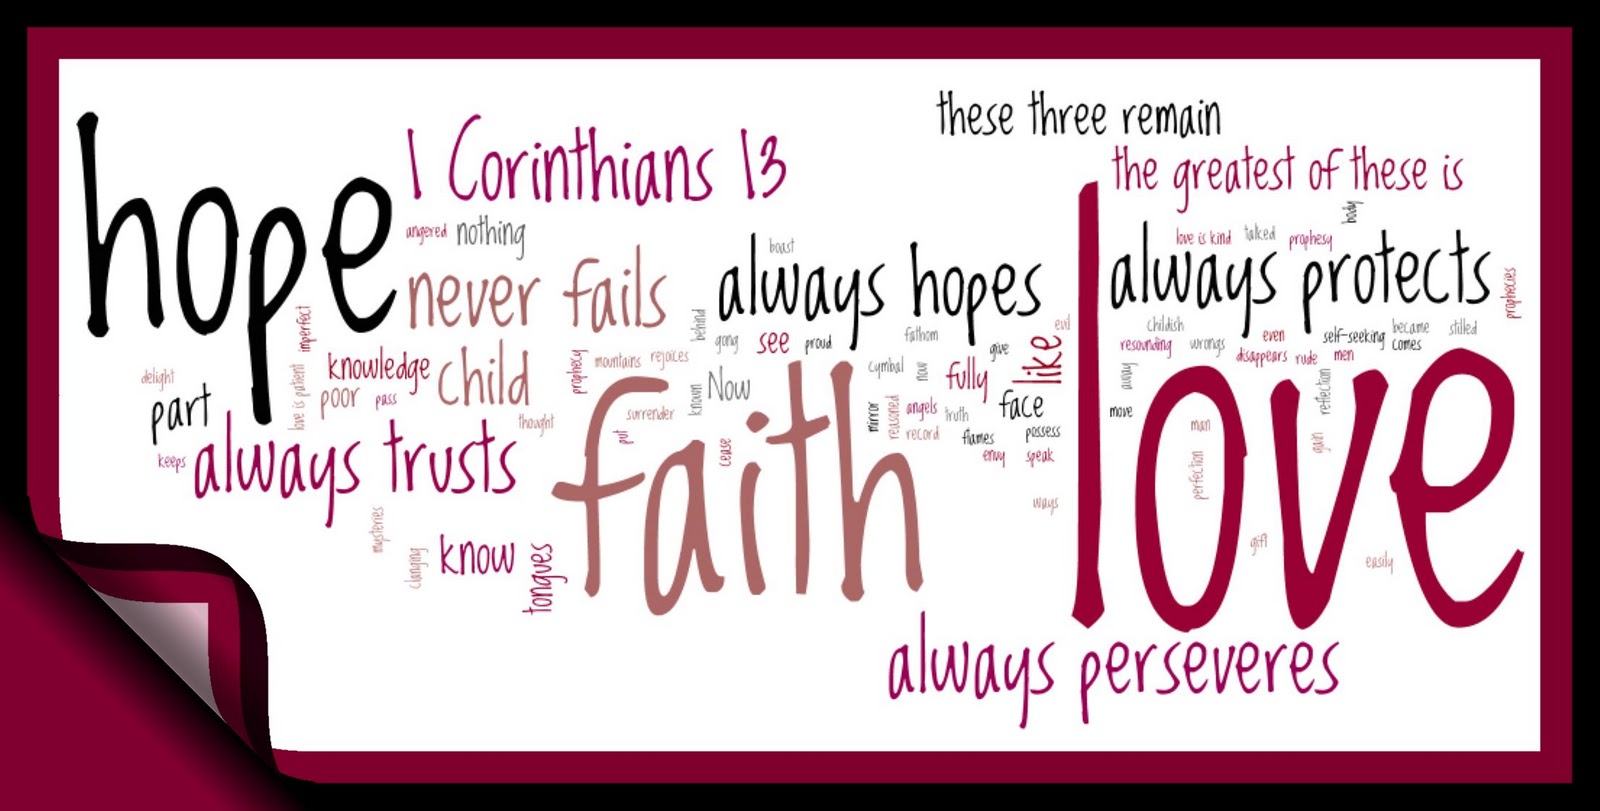 these three remain
1 Corinthians 13
the greatest of these is
hope
body
angered nothing
boast
love is kind talked prophesy
never fails
always hopes
always protects
prophecies
imperfect
behind
gong see proud
fathom
give
like
evil
childish
even
self-seeking became
stilled
resounding wrongs
comes
disappears rude men
delight
love is patient
knowledge
child
prophecy
mountains rejoices
poor pass
part
known
Now
cymbal now
fully
face
away
move
reflection
thought
surrender
put
cease
mirror
reasoned
angels truth
record
flames
possess
envy speak
man
gain
perfection
keeps
always trusts
faith
love
ways
mysteries
clanging
know
tongues
gift
easily
always perseveres